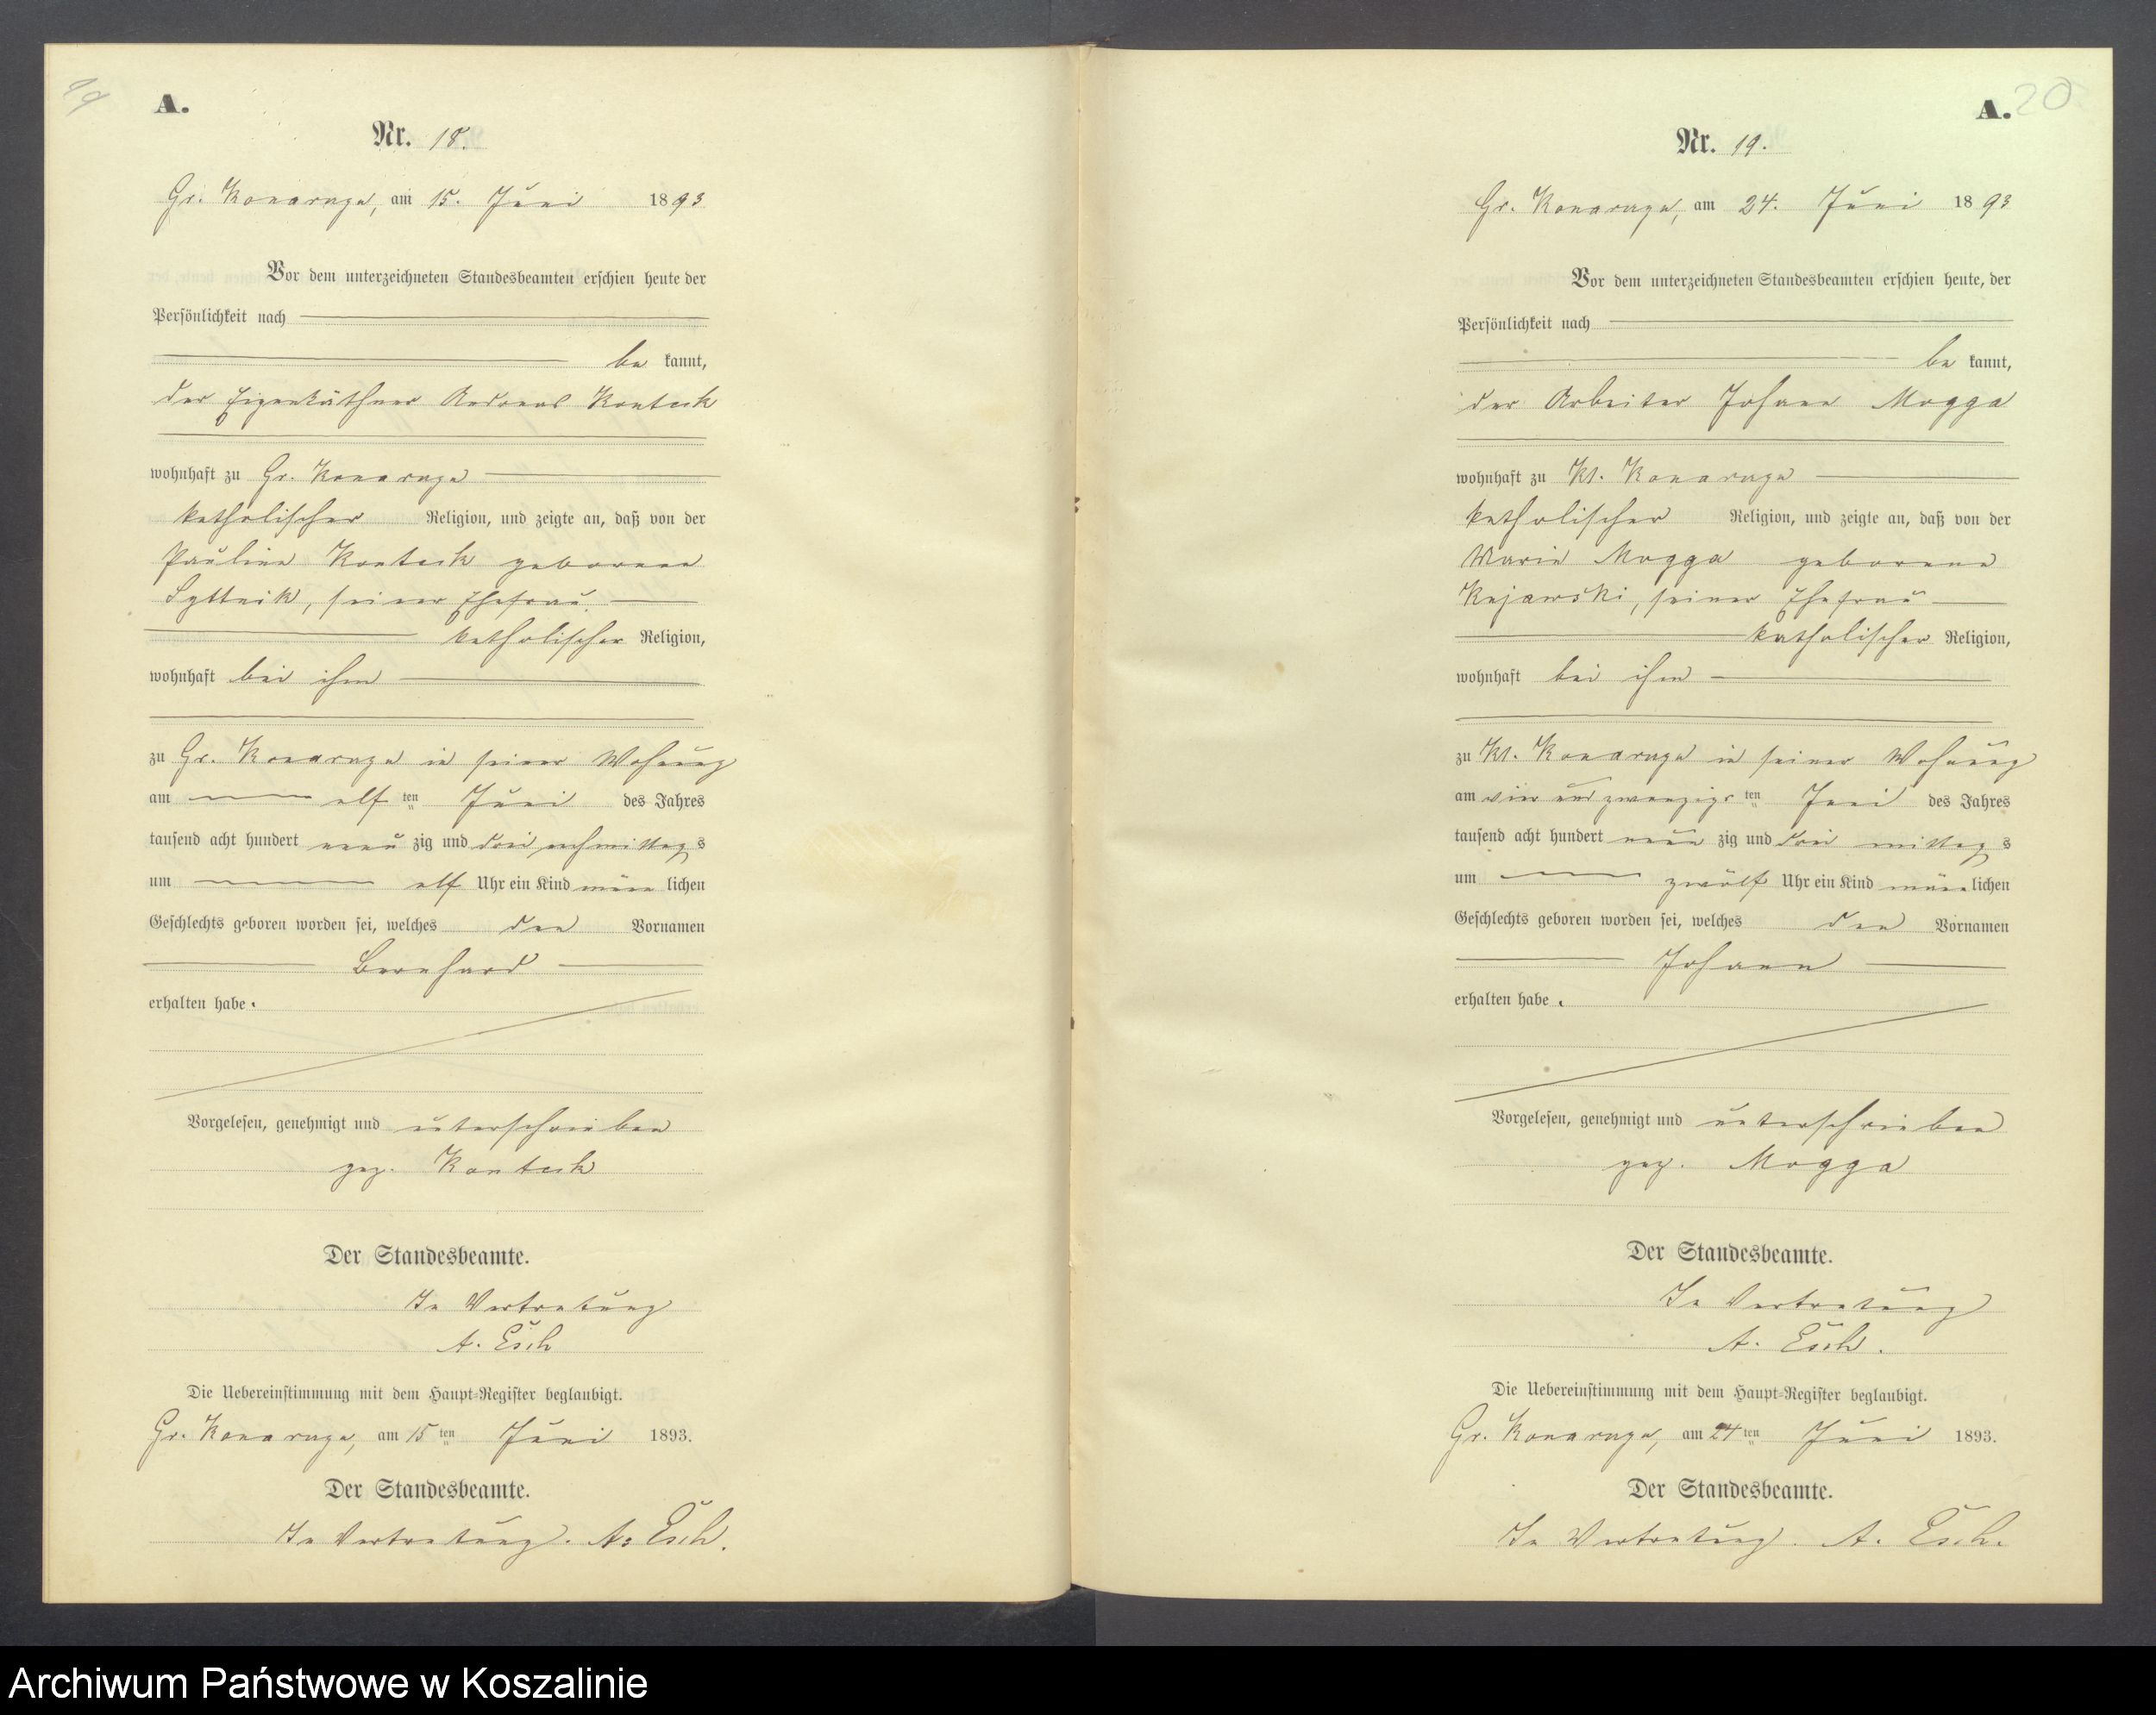 19
A.
Nr. 18.
Gr. Konarzyn, am 15. Juni 1893
Vor dem unterzeichneten Standesbeamten erschien heute der
Persönlichkeit nach
be kannt,
der Eigenkäthner Andreas Kontek
wohnhaft zu Gr. Konarzyn
katholischer Religion, und zeigte an, daß von der
Pauline Kontek geborenen
seiner Ehefrau
katholischer Religion,
wohnhaft bei ihm
zu Gr. Konarzyn in seiner Wohnung
am elf ten Juni des Jahres
tausend acht hundert neun zig und drei nachmittag s
um elf Uhr ein Kind männ lichen
Geschlechts geboren worden sei, welches den Vornamen
Bernhard
erhalten habe.
Vorgelesen, genehmigt und unterschrieben
gez. Kontek
Der Standesbeamte.
In Vertretung
A. Esch
Die Uebereinstimmung mit dem Haupt-Register beglaubigt.
Gr. Konarzyn, am 15 ten Juni 1893.
Der Standesbeamte.
In Vertretung. A. Esch.
A. 20
Nr. 19.
Gr. Konarzyn, am 24. Juni 1893
Vor dem unterzeichneten Standesbeamten erschien heute, der
Persönlichkeit nach
be kannt,
der Arbeiter Johann Mogga
wohnhaft zu Kl. Konarzyn
katholischer Religion, und zeigte an, daß von der
Marie Mogga geborene
Kujawski, seiner Ehefrau
katholischer Religion,
wohnhaft bei ihm
zu Kl. Konarzyn in seiner Wohnung
am vier und zwanzigs ten Juni des Jahres
tausend acht hundert neun zig und drei mittag s
um zwölf Uhr ein Kind männ lichen
Geschlechts geboren worden sei, welches den Vornamen
Johann
erhalten habe.
Vorgelesen, genehmigt und unterschrieben
gez. Mogga
Der Standesbeamte.
In Vertretung
A. Esch.
Die Uebereinstimmung mit dem Haupt-Register beglaubigt.
Gr. Konarzyn, am 24 ten Juni 1893.
Der Standesbeamte.
In Vertretung. A. Esch.
Archiwum Państwowe w Koszalinie